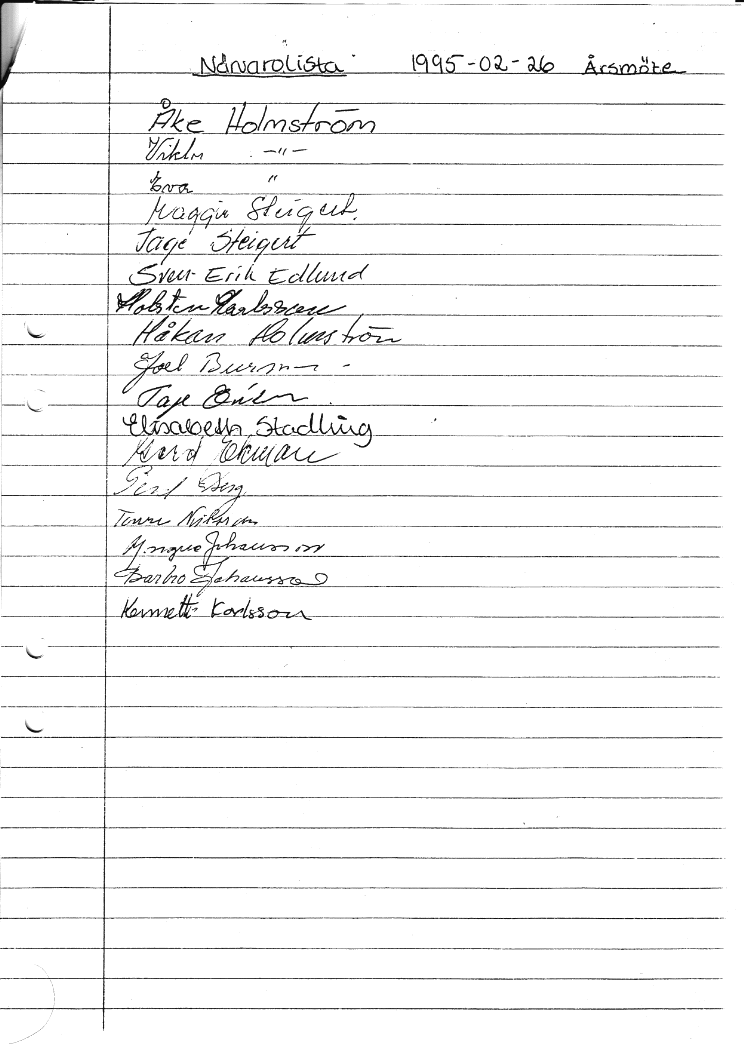 Närvarolista 1995-02-26 Årsmöte
Åke Holmström
Viktor -"-
Eva "
Maggie Steigert.
Tage Steigert
Sven-Erik Edlund
Holsten Karlsson
Håkan Holmström
Joel Burman
Tage
Elisabeth Stadling
Gerd Ekman
Berg
Yngve Johansson
Barbro Johansson
Kenneth Karlsson